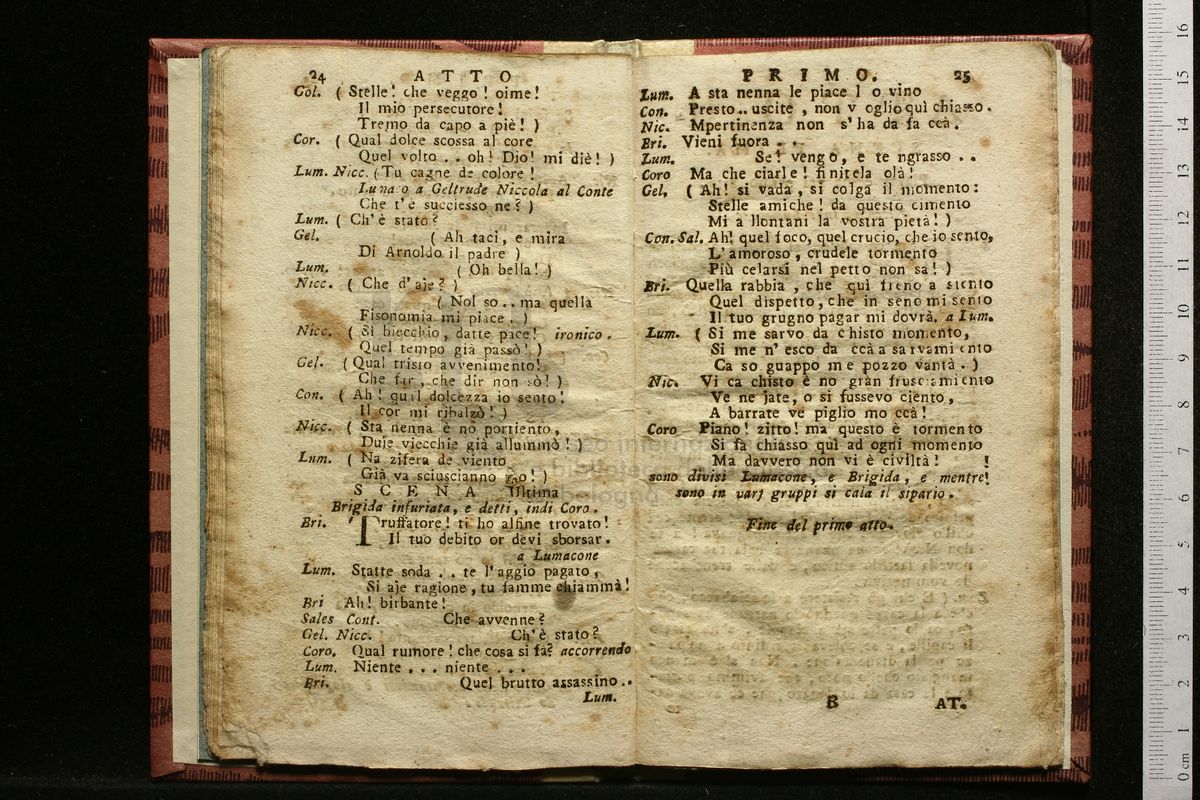 24 ATTO
Gel. ( Stelle! che veggo! oime!
Il mio persecutore!
Tremo da capo a piè! )
Cor. ( Qual dolce scossa al core
Quel volto .. oh! Dio! mi diè! )
Lum. Nicc. ( Tu cagne de colore!
Luna o a Geltrude Niccola al Conte
Che t'è succiesso ne? )
Lum. ( Ch'è stato?
Gel. ( Ah taci, e mira
Di Arnoldo il padre )
Lum. ( Oh bella! )
Nicc. ( Che d'aje? )
( Nol so .. ma quella
Fisonomia mi piace. )
Nicc. ( Si biecchio, datte pace! ironico.
Quel tempo già passò! )
Gel. ( Qual tristo avvenimento!
Che far, che dir non sò! )
Con. ( Ah! qual dolcezza io sento!
Il cor mi ribalzò! )
Nicc. ( Sta nenna è nò portiento,
Duje viecchie già allummò! )
Lum. ( Na zifera de viento
Già va sciuscianno mo! )
SCENA Ultima
Brigida infuriata, e detti, indi Coro.
Bri. Truffatore! ti ho alfine trovato!
Il tuo debito or devi sborsar.
a Lumacone
Lum. Statte soda .. te l'aggio pagato,
Si aje ragione, tu famme chiammà!
Bri Ah! birbante!
Sales Cont. Che avvenne?
Gel. Nicc. Ch'è stato?
Coro. Qual rumore! che cosa si fa? accorrendo
Lum. Niente ... niente ...
Bri. Quel brutto assassino..
Lum.
PRIMO. 25
Lum. A sta nenna le piace l o vino
Con. Presto.. uscite, non v oglio quì chiasso.
Nic. Mpertinenza non s'ha da fa ccà.
Bri. Vieni fuora ..
Lum. Se! vengo, e te ngrasso ..
Coro Ma che ciarle! finitela olà!
Gel, ( Ah! si vada, si colga il momento:
Stelle amiche! da questo cimento
Mi a llontani la vostra pietà! )
Con. Sal. Ah! quel foco, quel crucio, che io sento,
L'amoroso, crudele tormento
Più celarsi nel petto non sa! )
Bri. Quella rabbia, che quì freno a stento
Quel dispetto, che in seno mi sento
Il tuo grugno pagar mi dovrà. a lum.
Lum. ( Si me sarvo da chisto momento,
Si me n'esco da ccà a sarvamiento
Ca so guappo me pozzo vantà. )
Nic. Vi ca chisto è no gran frusciamiento
Ve ne jate, o si fussevo ciento,
A barrate ve piglio mo ccà!
Coro Piano! zitto! ma questo è tormento
Si fa chiasso quì ad ogni momento
Ma davvero non vi è civiltà! !
sono divisi Lumacone, e Brigida, e mentre!
sono in varj gruppi si cala il sipario.
Fine del primo atto.
B AT.